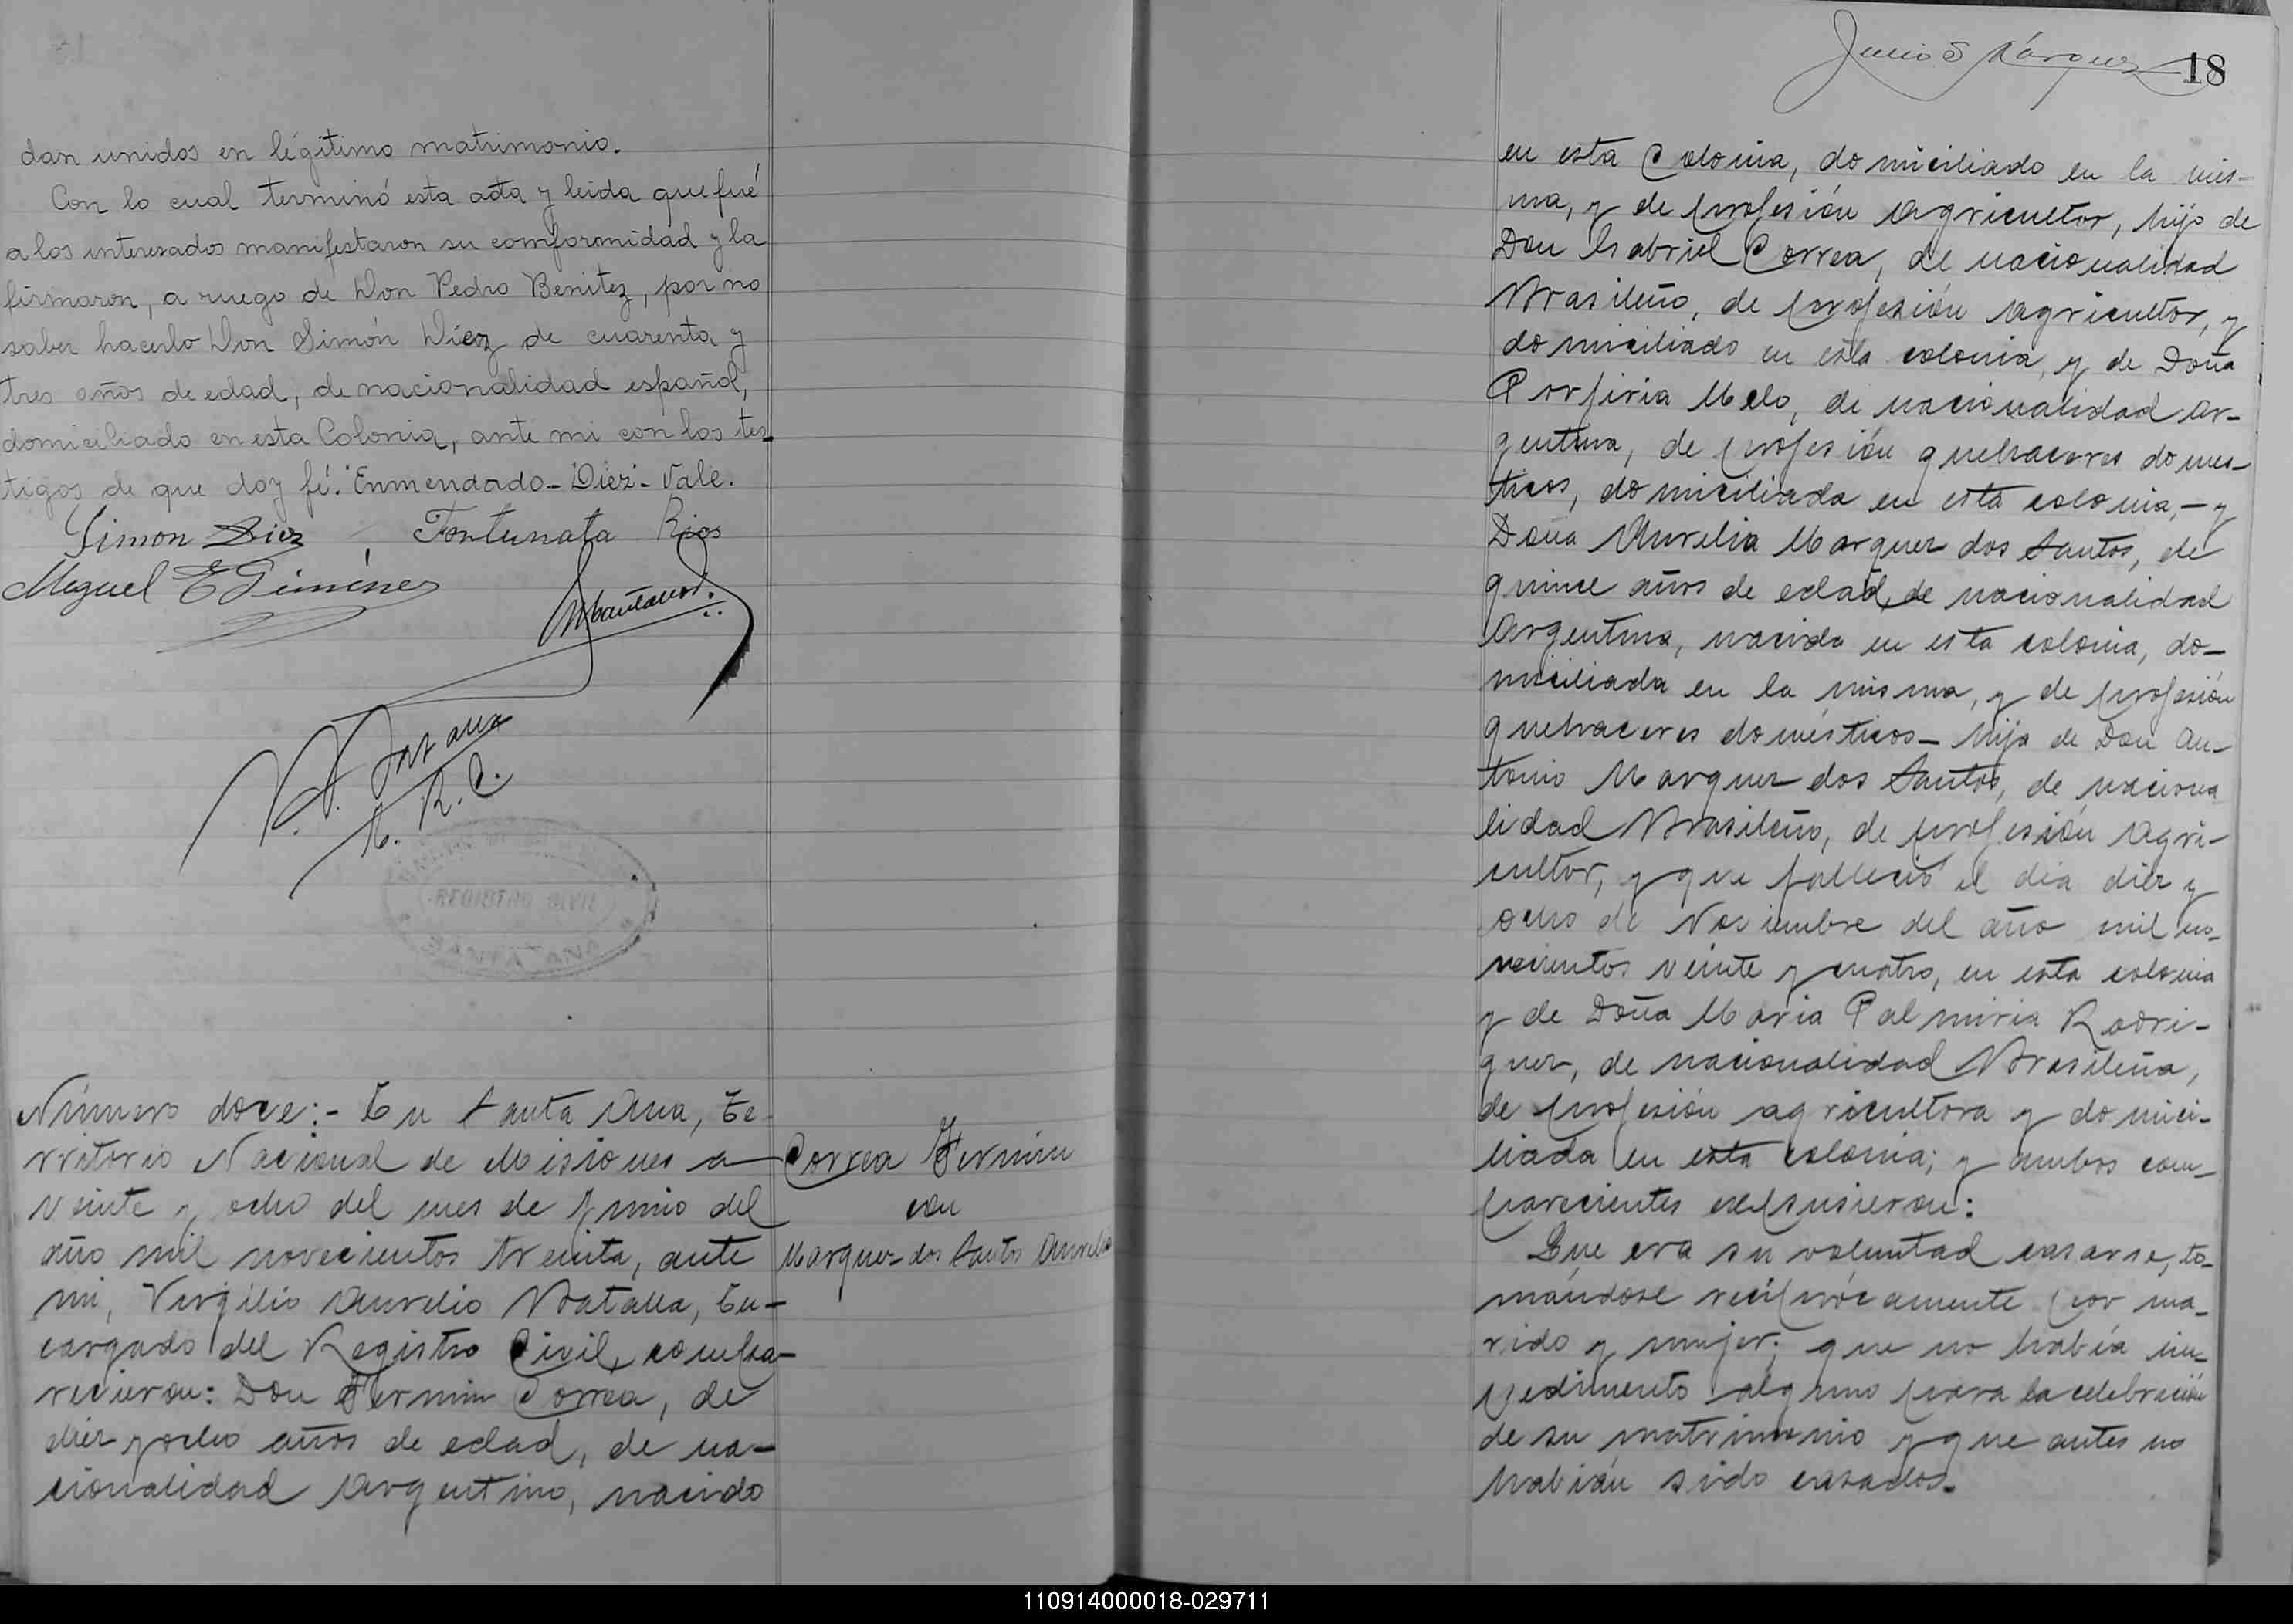 dan unidos en légitimo matrimonio.
Con lo cual terminó esta acta y leida que fué
a los interesados manifestaron su comformidad y la
firmaron, a ruego de Don Pedro Benitez, por no
saber hacerlo Don Simón Díez de cuarenta y
tres años de edad, de nacionalidad español,
domiciliado en esta Colonia, ante mi con los tes-
tigos de que doy fé. Enmendado - Diez - Vale.
Simon Diez Fortunata Rios
Miguel E Gimenez
R. C.
REGISTRO CIVIL
Número doce:- En Santa Ana, Te-
rritorio Nacional de Misiones a
veinte y ocho del mes de Junio del
año mil novecientos treinta, ante
mi, Virgilio Aurelio Batalla, En-
cargado del Registro Civil, compa-
recieron: Don Fermin Correa, de
diez y ocho años de edad, de na-
cionalidad Argentino, nacido
Correa Fermin
con
Marquez dos Santos Aurelia
18
en esta Colonia, domiciliado en la mis-
ma, y de profesión Agricultor, hijo de
Don Gabriel Correa, de nacionalidad
Brasileño, de profesión Agricultor, y
domiciliado en esta colonia, y de Doña
Porfiria Melo, de nacionalidad Ar-
gentina, de profesión quehaceres domes-
ticos, domiciliada en esta colonia, - y
Doña Aurelia Marquez dos Santos, de
quince años de edad, de nacionalidad
Argentina, nacida en esta colonia, do-
miciliada en la misma, y de profesión
quehaceres domésticos - hija de Don An-
tonio Marquez dos Santos, de naciona
lidad Brasileño, de profesión Agri-
cultor, y que falleció el día diez y
ocho de Noviembre del año mil no-
vecientos veinte y cuatro, en esta colonia
y de Doña Maria Palmiria Rodri-
guez, de nacionalidad Brasileña,
de profesión agricultora y domici-
liada en esta colonia; y ambos com-
parecientes expusieron:
Que era su voluntad casarse, to-
mándose recíprócamente por ma-
rido y mujer; que no había im-
pedimento alguno para la celebración
de su matrimonio y que antes no
habián sido casados.
110914000018-029711